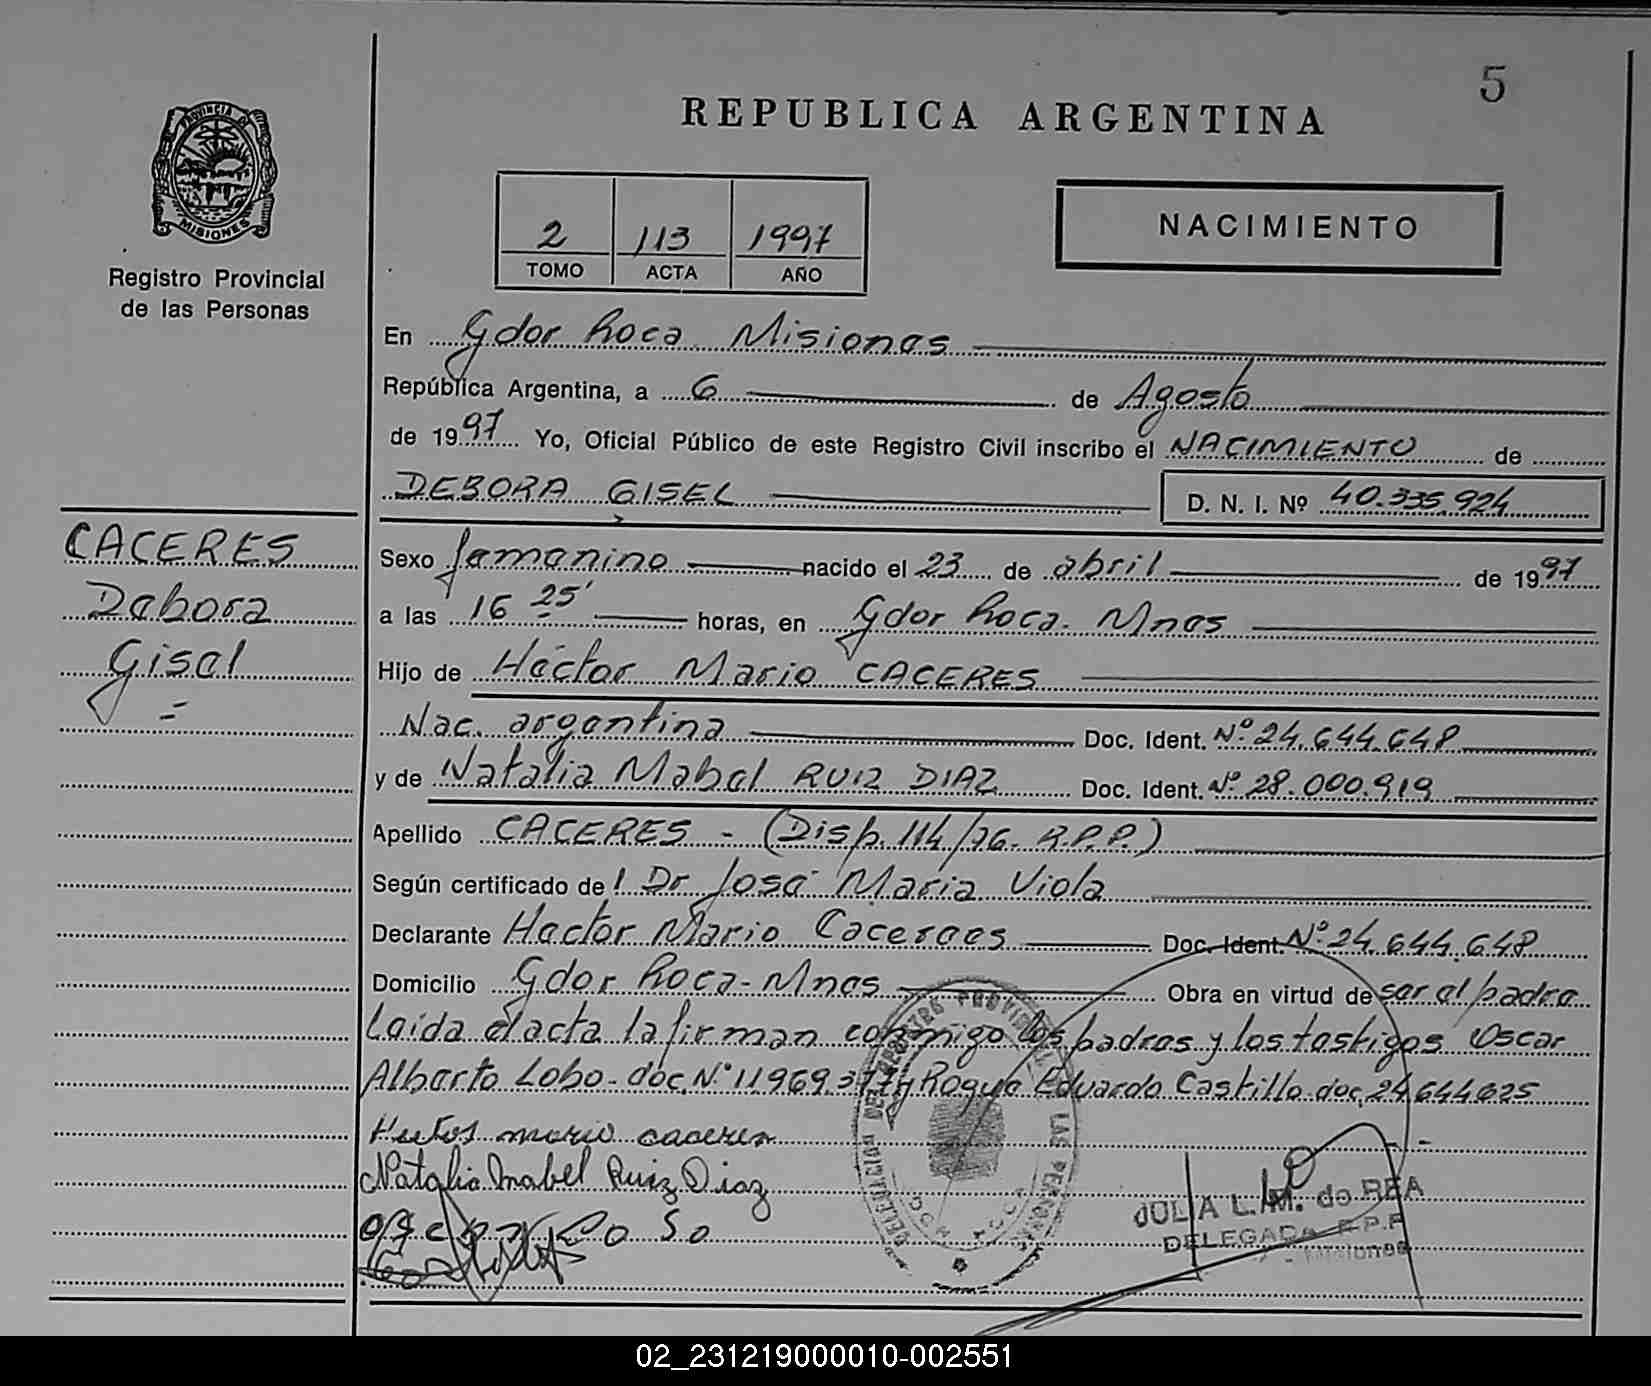 5
REPUBLICA ARGENTINA
PROVINCIA DE
MISIONES
Registro Provincial
de las Personas
2 113 1997
TOMO ACTA AÑO
NACIMIENTO
En Gdor Roca Misiones
República Argentina, a 6 de Agosto
de 1997 Yo, Oficial Público de este Registro Civil inscribo el NACIMIENTO de
DEBORA GISEL D. N. I. Nº 40.335.924
CACERES
Debora
Gisel
Sexo femenino nacido el 23 de abril de 1997
a las 16 25' horas, en Gdor Roca. Mnes
Hijo de Héctor Mario CACERES
Nac. argentina Doc. Ident. Nº 24.644.648
y de Natalia Mabel RUIZ DIAZ Doc. Ident. Nº 28.000.919
Apellido CACERES - (Disp. 114/76. R.P.P.)
Según certificado del Dr José Maria Viola
Declarante Hector Mario Caceraes Doc. Ident. Nº 24.644.648
Domicilio Gdor Roca-Mnes Obra en virtud de ser el padre
Leida el acta la firman conmigo los padres y los testigos Oscar
Alberto Lobo. doc. Nº 11969.377 y Roque Eduardo Castillo doc. 24644625
mario caceres
Natalia Mabel Ruiz Diaz
JULIA L. M. de REA
DELEGADA R.P.P.
Misiones
02_231219000010-002551